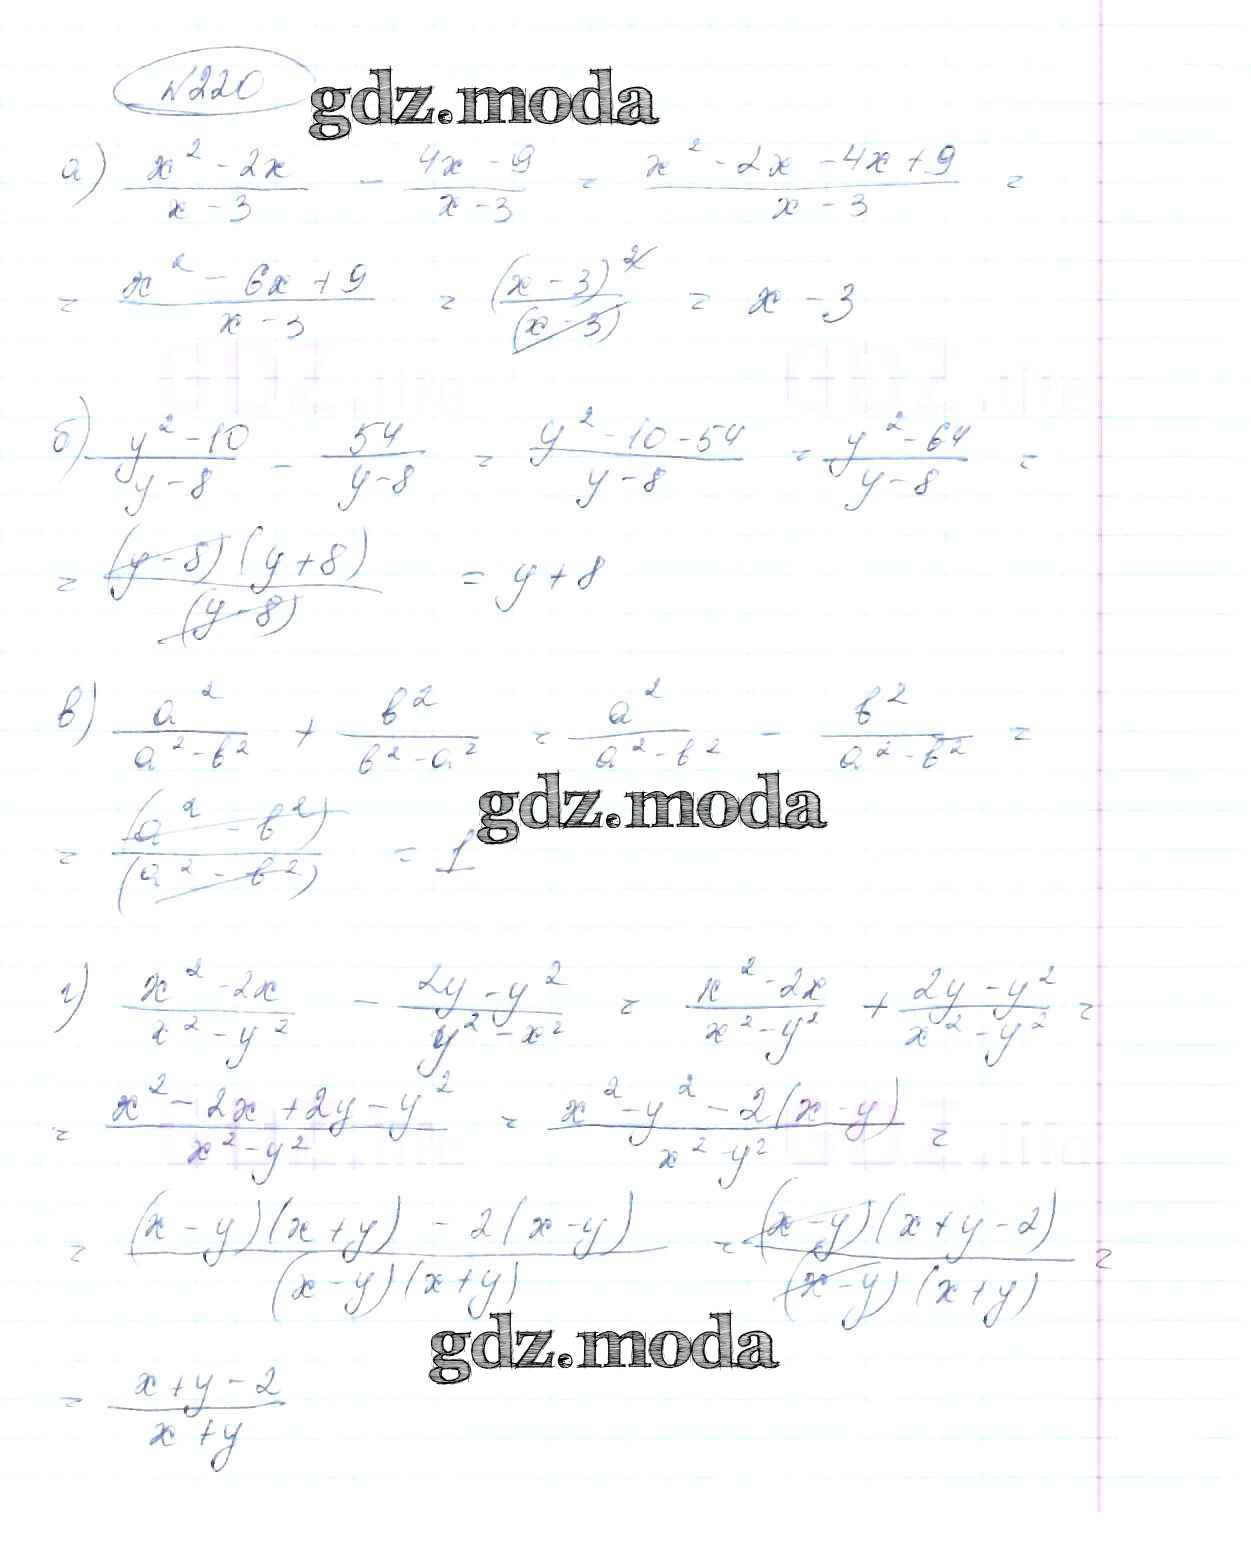 №220
gdz.moda
а) (x² - 2x)/(x - 3) - (4x - 9)/(x - 3) = (x² - 2x - 4x + 9)/(x - 3) =
= (x² - 6x + 9)/(x - 3) = (x - 3)²/(x - 3) = x - 3
б) (y² - 10)/(y - 8) - 54/(y - 8) = (y² - 10 - 54)/(y - 8) = (y² - 64)/(y - 8) =
= (y - 8)(y + 8)/(y - 8) = y + 8
в) a²/(a² - b²) + b²/(b² - a²) = a²/(a² - b²) - b²/(a² - b²) =
gdz.moda
= (a² - b²)/(a² - b²) = 1
г) (x² - 2x)/(x² - y²) - (2y - y²)/(y² - x²) = (x² - 2x)/(x² - y²) + (2y - y²)/(x² - y²) =
= (x² - 2x + 2y - y²)/(x² - y²) = (x² - y² - 2(x - y))/(x² - y²) =
= ((x - y)(x + y) - 2(x - y))/((x - y)(x + y)) = (x - y)(x + y - 2)/((x - y)(x + y)) =
gdz.moda
= (x + y - 2)/(x + y)